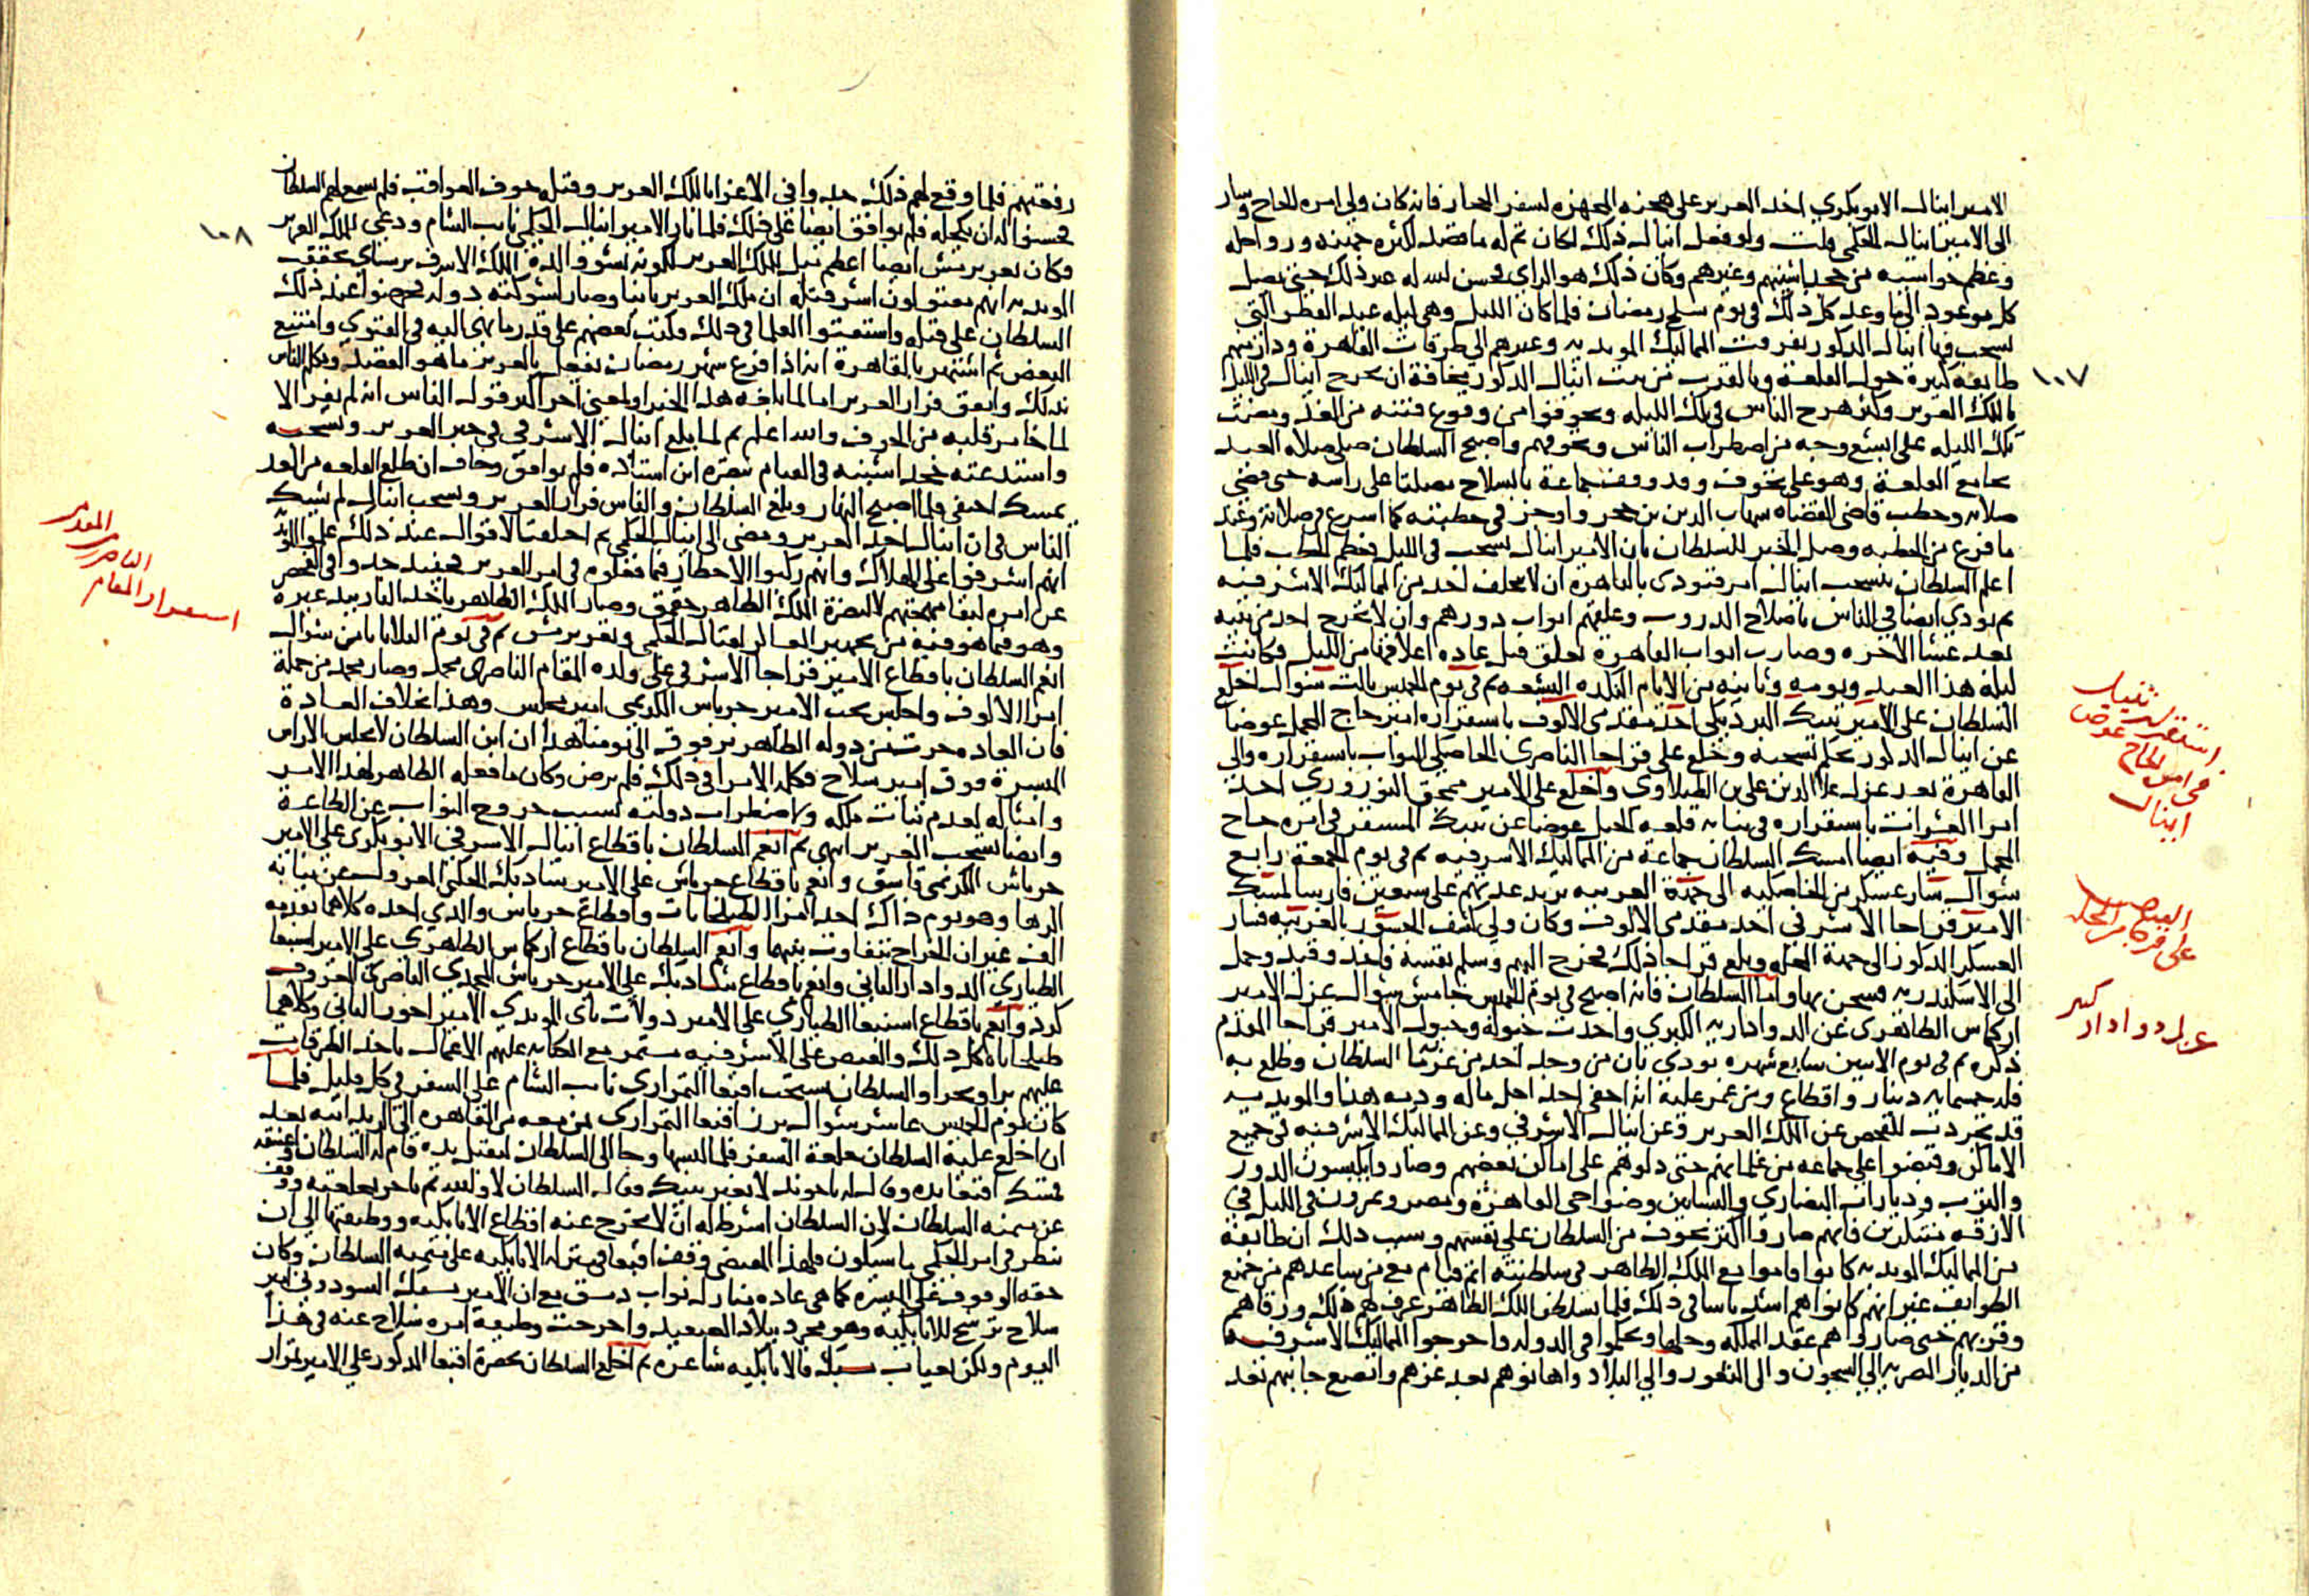 الامير اينال الابوبكري اخذ العزيز على هجنه المجهزه لسفر الحجاز فانه كان ولي امره الحاج وسار
الى الامير اينال الحكمي قلت ولو فعل اينال ذلك لكان تم له ما قصد لكثره هجنه ورواحله
وعظم حواشيه من خجداشيتهم وغيرهم وكان ذلك هو الراي فحسن لله له غير ذلك حتى يصل
كل موعود الى ما وعد كل ذلك في يوم سلخ رمضان فلما كان الليل وهي ليله عيد الفطر التي
تسحب فيها اينال المذكور تفرقت المماليك المويديه وغيرهم الى طرقات القاهرة ودار منهم
١٠٧
طايفه كبيرة حول القلعة وبالقرب من بيت اينال المذكور مخافة ان يخرج اينال في الليل
بالملك العزيز وكثر هرج الناس في تلك الليله وتخوفوا من وقوع فتنه من الغد ومضت
تلك الليله على ابشع وجه من اضطراب الناس وتخوفهم واصبح السلطان صلى صلاه العيد
بجامع القلعة وهو على تخوف وقد وقف جماعة بالسلاح مصلتا على راسه حتى قضى
صلاته وخطب قاضي القضاه شهاب الدين بن حجر واوجز في خطبته كما اسرع في صلاته وعند
ما فرغ من الخطبه وصل الخبر للسلطان بان الامير اينال تسحب في الليل فعظم الخطب فلما
اعلم السلطان بتسحب اينال امر فنودي بالقاهرة ان لا يتخلف احد من المماليك الاشرفيه
ثم نودي ايضا في الناس باصلاح الدروب وغلقهم ابواب دورهم وان لا يخرج احد من بيته
بعد عشا الاخره وصارت ابواب القاهرة تغلق قبل عاده اغلاقها من الليل فكانت
ليلة هذا العيد ويومه وثانيه من الايام النكده البشعه ثم في يوم الخميس ثالث شوال اخلع
السلطان على الامير تنبك البردبكي احد مقدمي الالوف باستقراره امير حاج المحمل عوضا
استقر تنبك
في امره الحاج عوض
اينال
عن اينال المذكور بحكم تسحبه وخلع على قراجا الناصري الخاصكي البواب باستقراره والي
القاهرة بعد عزل علا الدين علي بن الطبلاوي واخلع على الامير ممجق النوروزي احد
امرا العشرات باستقراره في نيابه قلعه الجبل عوضا عن تنبك المستقر في امره حاج
المحمل وفيه ايضا امسك السلطان جماعة من المماليك الاشرفيه ثم في يوم الجمعة رابع
شوال سار عسكر من الخاصكيه الى جهة الغربيه يزيد عدتهم على سبعين فارسا لمسك
القبض
على قراجا
الامير قراجا الاشرفي احد مقدمي الالوف وكان ولي كشف الجسور بالغربيه فسار
العسكر المذكور الى جهة المحله وبلغ قراجا ذلك فخرج اليهم وسلم نفسه فاخذ وقيد وحمل
الى الاسكندريه فسجن بها واما السلطان فانه اصبح في يوم الخميس خامس شوال عزل الامير
عزل دوادار كبير
اركماس الظاهري عن الدواداريه الكبري واخذت خيوله وخيول الامير قراجا المقدم
ذكره ثم في يوم الاثنين سابع شهره نودي بان من وجد احد من غرما السلطان وطلع به
فله خمسمايه دينار واقطاع ومن غمز عليه انه اخفى احد احل ماله ودمه هذا والمويديه
قد تجردت للفحص عن الملك العزيز وعن اينال الاشرفي وعن المماليك الاشرفيه في جميع
الاماكن وقبضوا على جماعه من غلمانهم حتى دلوهم على اماكن بعضهم وصاروا يكبسون الدور
والترب وديارات النصاري والبساتين وضواحي القاهرة ومصر ويمرون في الليل في
الازقه متنكرين فانهم صاروا اكثر تخوف من السلطان على نفسهم وسبب ذلك ان طائفة
من المماليك المويديه كانوا قاموا مع الملك الظاهر في سلطنته اتم قيام مع من ساعدهم من جميع
الطوايف غير انهم كانوا هم اشد باسا في ذلك فلما تسلطن الملك الظاهر عرف لهم ذلك ورقاهم
وقربهم حتى صار لهم عقد المملكه وحلها وتحكموا في الدوله واخرجوا المماليك الاشرفيه
من الديار المصريه الى السجون والى الثغور والى البلاد واهانوهم بعد عزهم واتضع جانبهم بعد
رفعتهم فلما وقع لهم ذلك جدوا في الاغرا بالملك العزيز وقتله خوف العواقب فلم يسمع لهم السلطان
فحسنوا له ان يكحله فلم يوافق ايضا على ذلك فلما ثار الامير اينال الحكمي نايب الشام ودعى للملك العزيز
١٠٨
وكان تغري برمش ايضا اعظم ميل للملك العزيز لكونه نشو والده الملك الاشرف برسباي تحقق
المويديه انهم مقتولون اشر قتله ان ملك العزيز ثانيا وصار لشوكته دوله فحرضوا عند ذلك
السلطان على قتله واستفتوا العلما في ذلك فكتب بعضهم على قدر ما نهي اليه في الفتوي وامتنع
البعض ثم اشتهر بالقاهرة انه اذا فرغ شهر رمضان يفعل بالعزيز ما هو القصد وتكلم الناس
بذلك واتفق فرار العزيز اما لما بلغه هذا الخبر او لمعنى اخر اكثر قول الناس انه لم يفر الا
لما خامر قلبه من الخوف والله اعلم ثم لما بلغ اينال الاشرفي في خبر العزيز وتسحبه
واستدعته خجداشيته في القيام بنصره ابن استاذه فلم يوافق وخاف ان طلع القلعه من الغد
يمسك اختفى فلما اصبح النهار وبلغ السلطان والناس فرار العزيز وتسحب اينال لم يشك
الناس في ان اينال اخذ العزيز ومضى الى اينال الحكمي ثم اختلفت الاقوال عند ذلك على المويديه
انهم اشرفوا على الهلاك وانهم ركبوا الاخطار فيما فعلوه في امر العزيز فعند جدوا في الفحص
استقرار المقام
الناصري
المقدم
عن امره لبقا مهجتهم لا لنصرة الملك الظاهر جقمق وصار الملك الظاهر ياخذ النار بيد غيره
وهو فيما هو فيه من تجهيز العساكر لقتال الحكمي وتغري برمش ثم في يوم الثلاثا ثامن شوال
انعم السلطان باقطاع الامير قراجا الاشرفي على ولده المقام الناصري محمد وصار محمد من جملة
امرا الالوف واجلس تحت الامير جرباش الكريمي امير مجلس وهذا بخلاف العادة
فان العاده جرت من دوله الظاهر برقوق الى يومنا هذا ان ابن السلطان لا يجلس الا راس
الميسرة فوق امير سلاح فكلمه الامرا في ذلك فلم يرض وكان ما فعله الظاهر لهذا الامر
وامثاله لعدم ثبات ملكه ولاضطراب دولته لسبب خروج النواب عن الطاعة
وايضا تسحب العزيز انتهى ثم انعم السلطان باقطاع اينال الاشرفي الابوبكري على الامير
جرباش الكريمي قاشق وانعم باقطاع جرباش على الامير شادبك الجكمي المعزول عن نيابة
الرها وهو يوم ذاك احد امرا الطبلخانات واقطاع جرباش والذي اخذه كلاهما تقدمه
الف غير ان الخراج يتفاوت بينهما وانعم السلطان باقطاع اركماس الظاهري على الامير اسنبغا
الطياري الدوادار الثاني وانعم باقطاع شادبك على الامير جرباش المحمدي الناصري المعروف
كرد وانعم باقطاع اسنبغا الطياري على الامير دولات باي المويدي الامير اخور الثاني وكلاهما
طبلخاناه كل ذلك والقبض على الاشرفيه مستمر مع الكتابه عليهم الاعمال باخذ الطرقات
عليهم برا وبحرا والسلطان يستحث اقبغا التمرازي نايب الشام على السفر في كل قليل فلما
كان يوم الخميس عاشر شوال برز اقبغا التمرازي بمن معه من القاهره الى الريدانيه بعد
ان اخلع عليه السلطان خلعة السفر فلما لبسها وجا الى السلطان ليقبل يده قام له السلطان واعتنقه
فمسك اقبغا يده وقال له يا خوند لا تغير نيتك وقال له السلطان لا والله ثم تاخر بخلعته ووقف
عن يمنه السلطان لان السلطان اشرط له ان لا يخرج عنه اقطاع الاتابكيه ووظيفتها الى ان
ينظر في امر الحكمي ما سيكون فلهذا المقتضى وقف اقبغا في منزله الاتابكيه على يمنه السلطان وكان
حقه الوقوف على الميسره كما هي عاده منازل نواب دمشق مع ان الامير يشبك السودوني امير
سلاح ترشح للاتابكيه وهو مجرد ببلاد الصعيد واخرجت وظيفة امره سلاح عنه في هذا
اليوم ولكن لغياب يشبك فالاتابكيه شاغره ثم اخلع السلطان بحضرة اقبغا المذكور على الامير تمراز